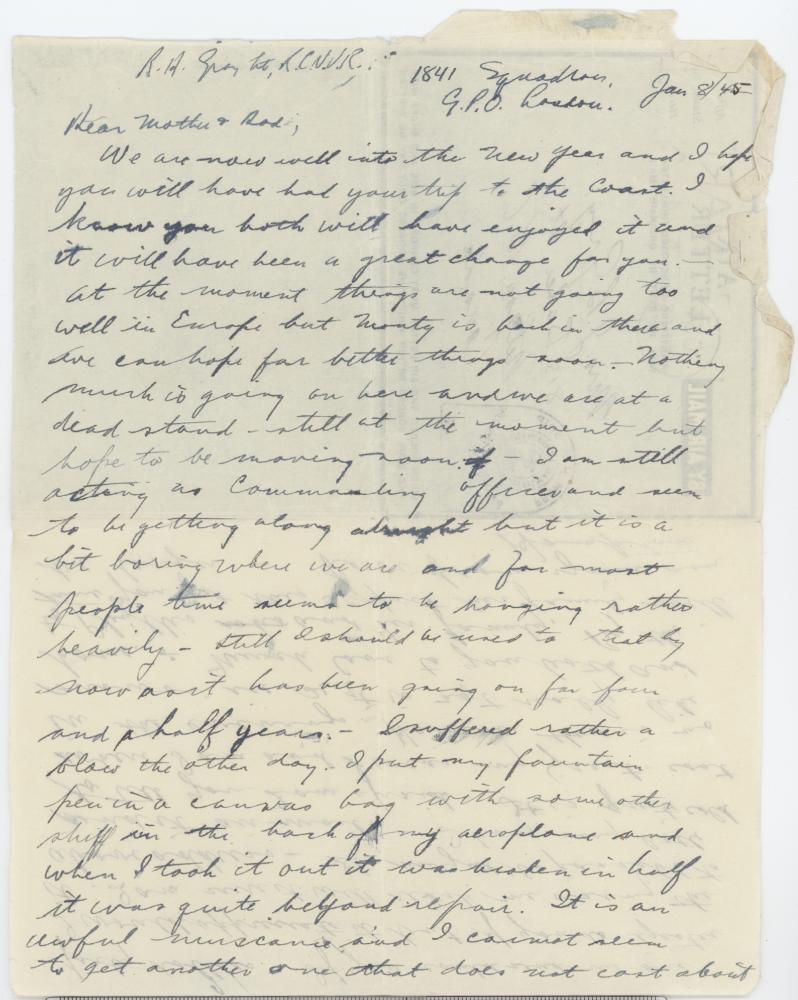 R. H. Gray Lt, R.C.N.V.R.
1841 Squadron,
G.P.O. London. Jan 8/45
Dear Mother & Dad;
We are now well into the New Year and I hope
you will have had your trip to the Coast. I
know you both will have enjoyed it and
it will have been a great change for you. -
At the moment things are not going too
well in Europe but Monty is back in there and
we can hope for better things soon. - Nothing
much is going on here and we are at a
dead stand - still at the moment but
hope to be moving soon. - I am still
acting as Commanding Officer and seem
to be getting along alright but it is a
bit boring where we are and for most
people time seems to be hanging rather
heavily - still I should be used to that by
now as it has been going on for four
and a half years. - I suffered rather a
blow the other day. I put my fountain
pen in a canvas bag with some other
stuff in the back of my aeroplane and
when I took it out it was broken in half
it was quite beyond repair. It is an
awful nuscance and I cannot seem
to get another one that does not cost about